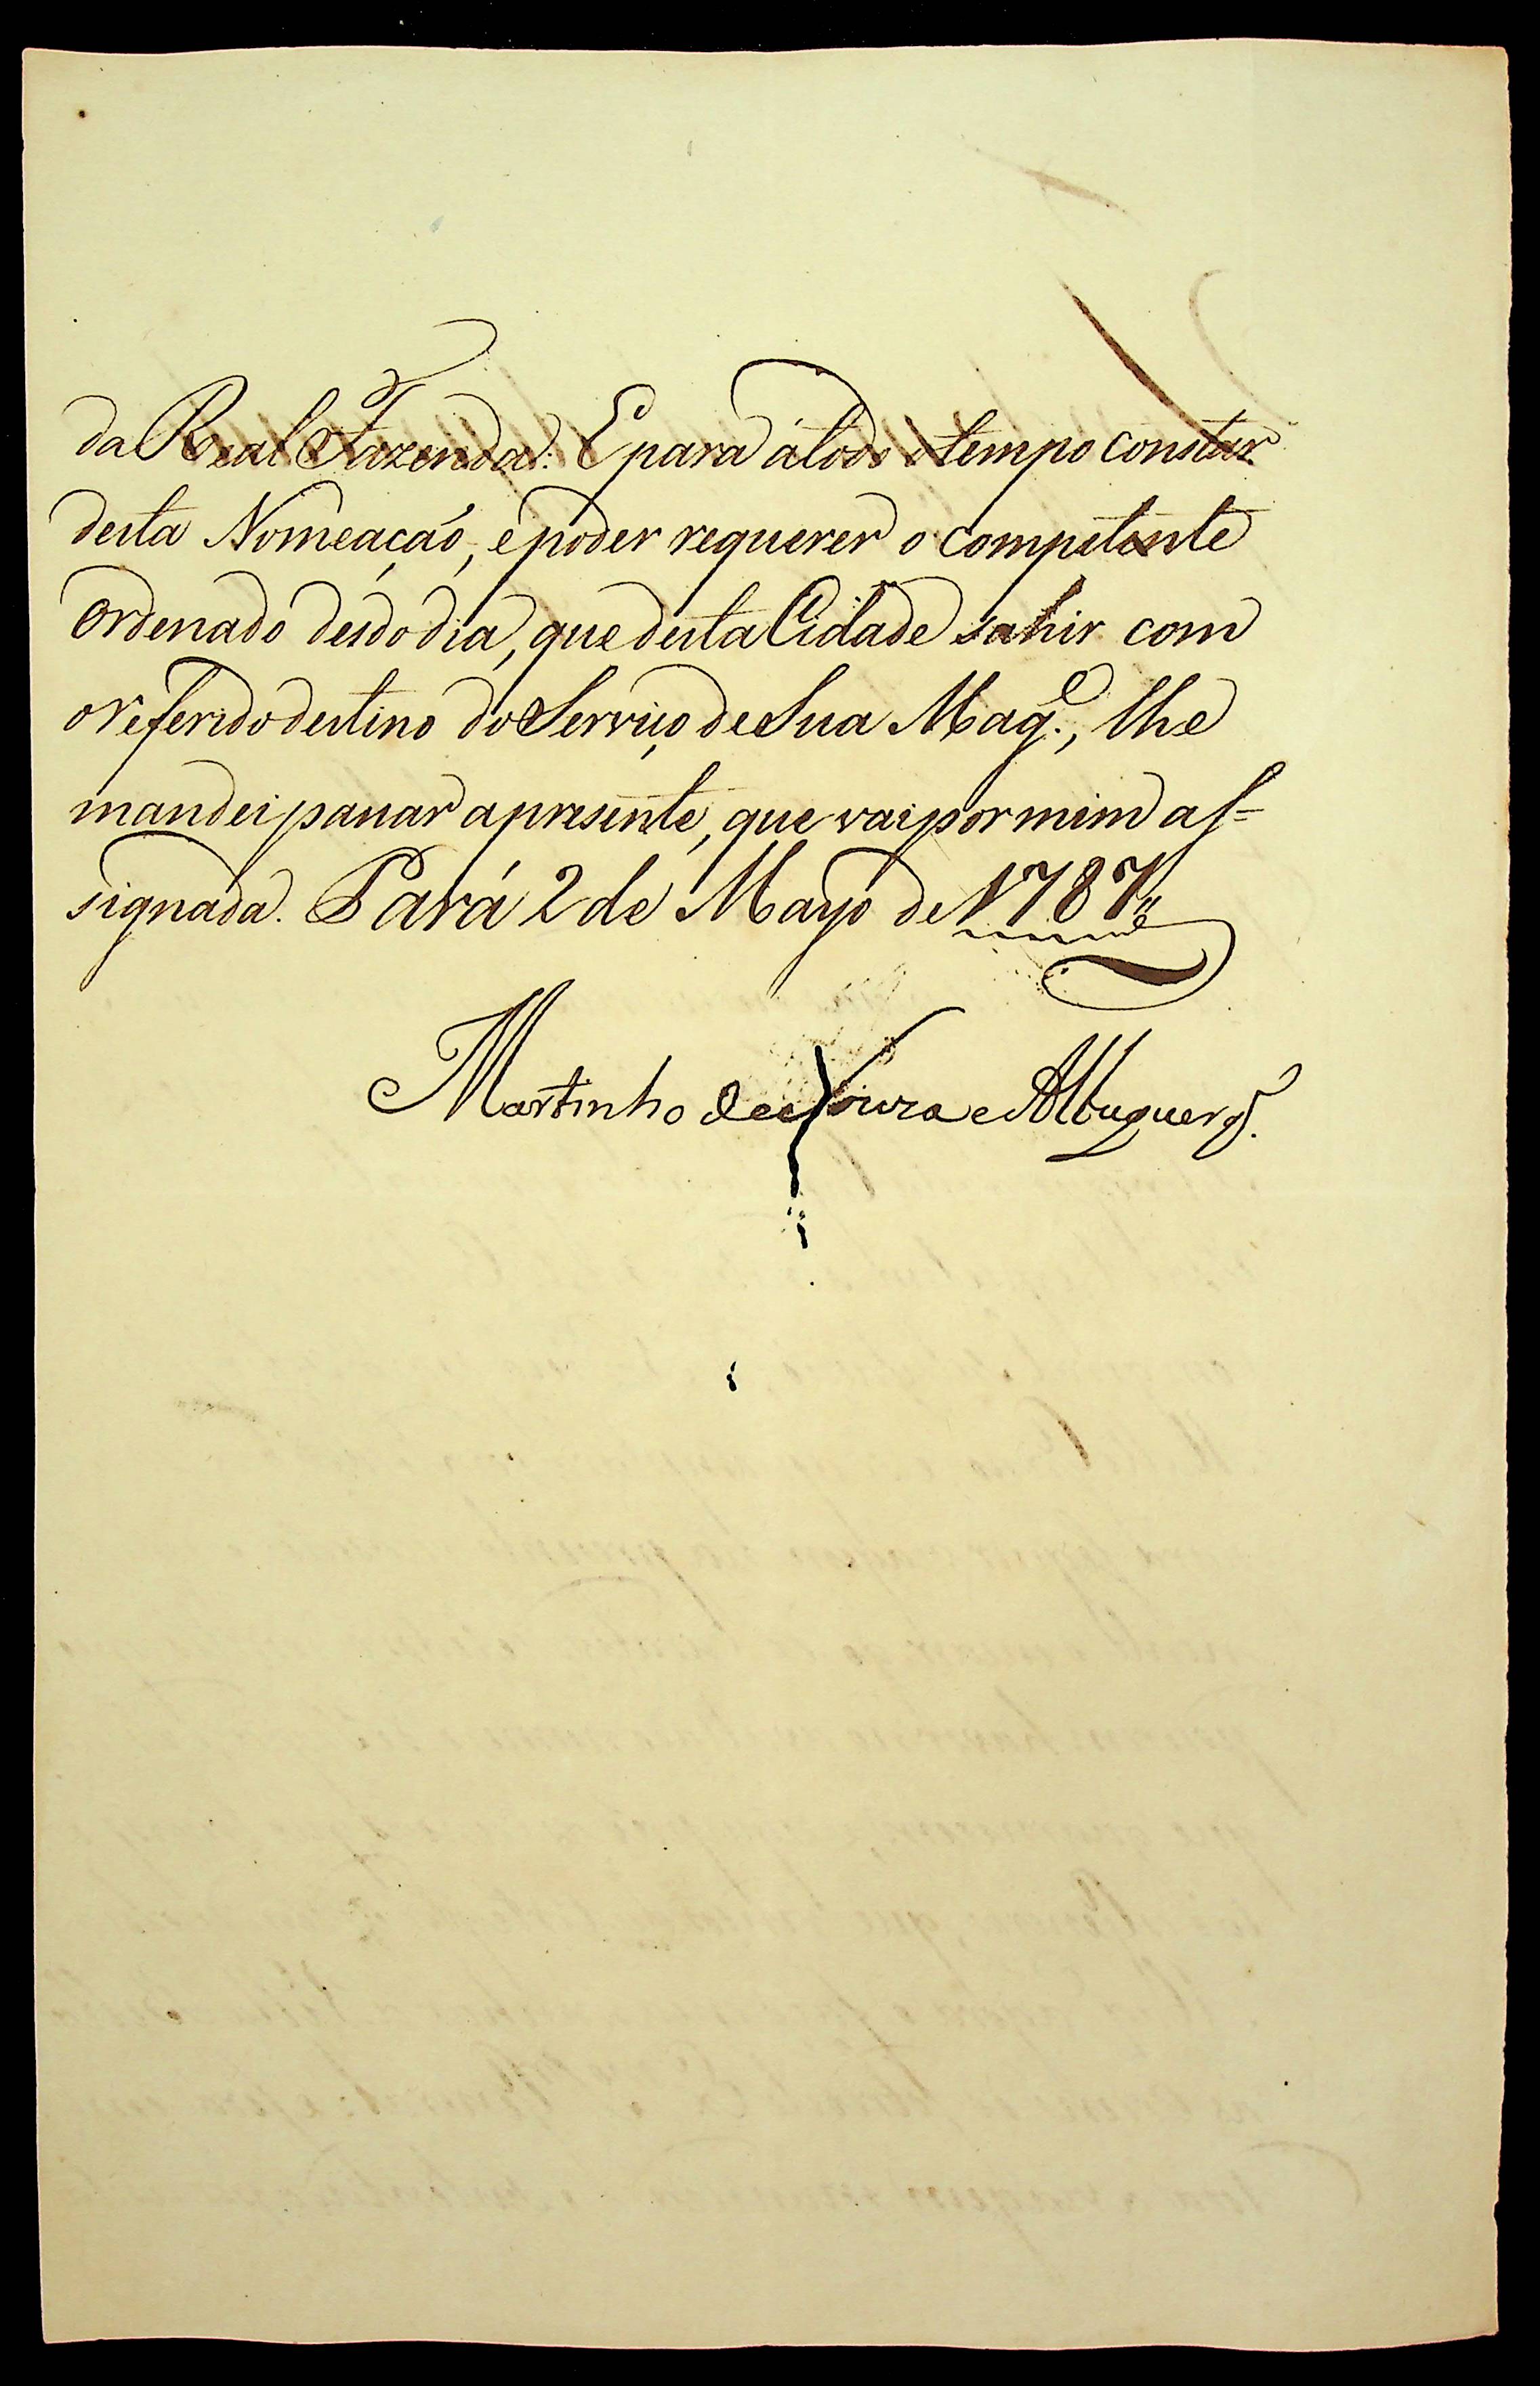 da Real Fazenda: E para á todo o tempo constar
desta Nomeação, e poder requerer o competente
Ordenado desdo dia, que desta Cidade sahir com
o referido destino do Serviço de Sua Mag.e, lhe
mandei passar a presente, que vai por mim as-
signada. Pará 2 de Mayo de 1787,,
Martinho de Souza e Albuquerq.